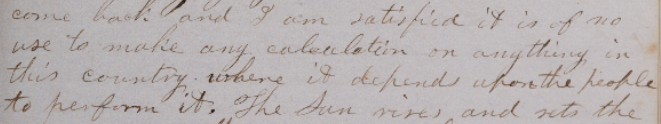 come back and I am satisfied it is of no
use to make any calculation on anything in
this country where it depends upon the people
to perform it. The Sun rises and sets the